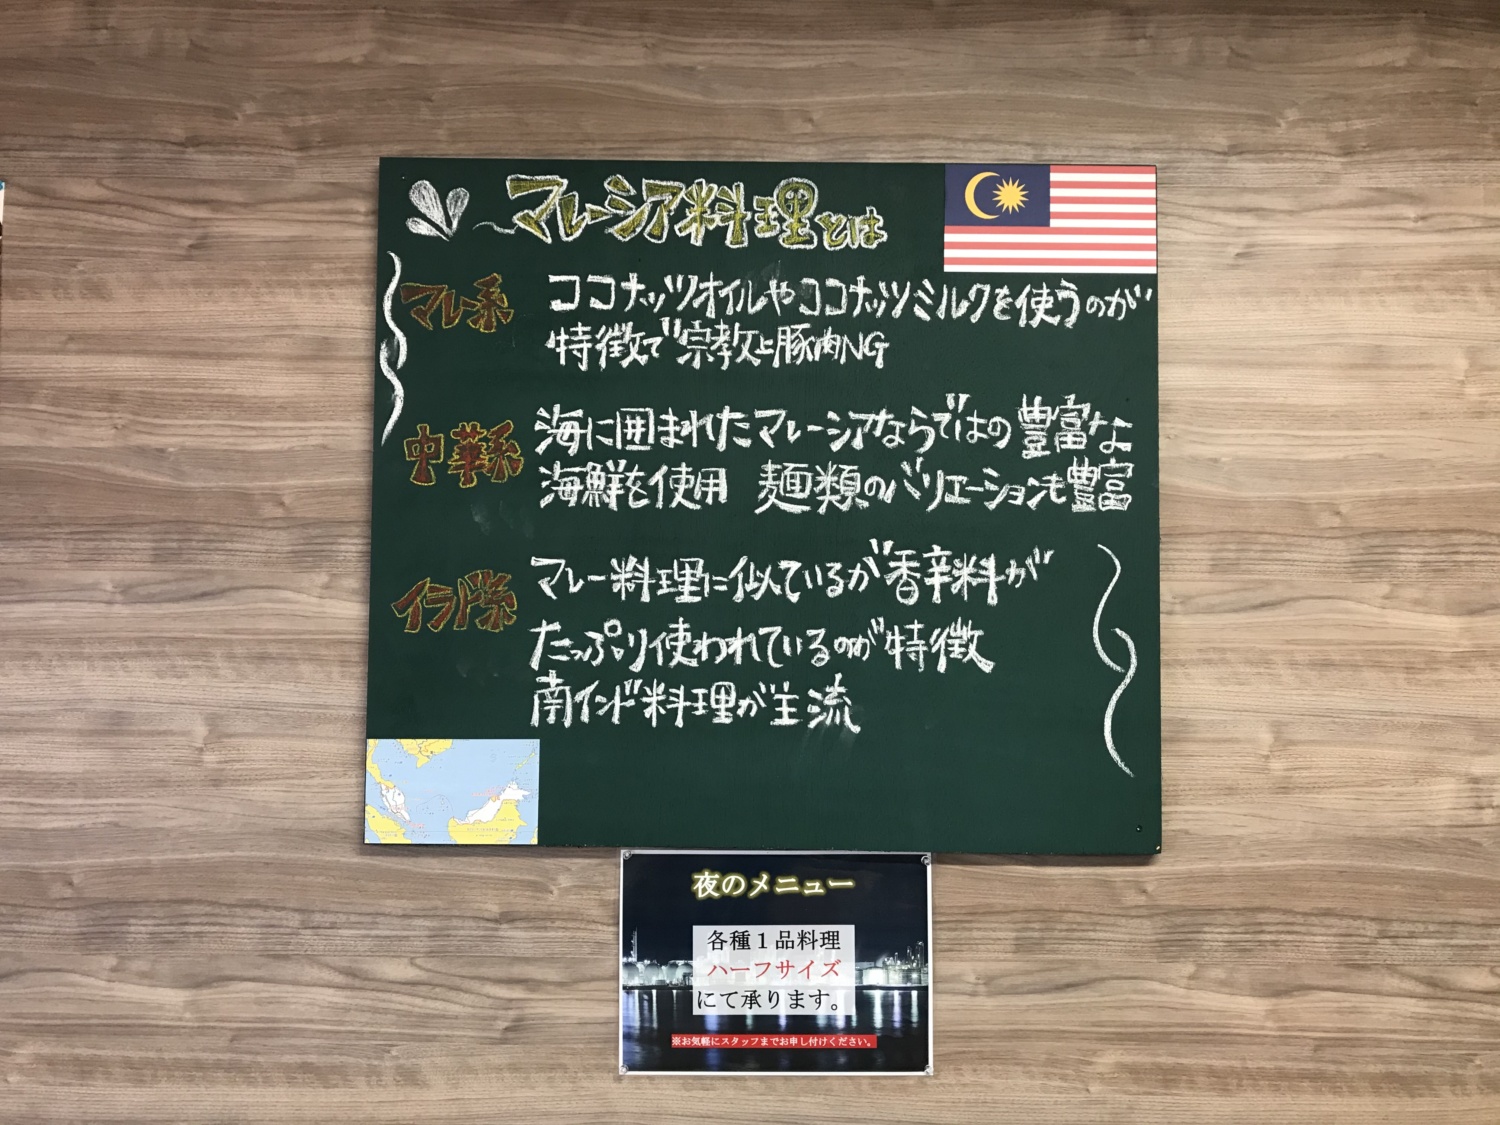 マレーシア料理とは
マレー系
ココナッツオイルやココナッツミルクを使うのが
特徴で宗教上豚肉NG
中華系
海に囲まれたマレーシアならではの豊富な
海鮮を使用 麺類のバリエーションも豊富
インド系
マレー料理に似ているが香辛料が
たっぷり使われているのが特徴
南インド料理が主流
夜のメニュー
各種1品料理
ハーフサイズ
にて承ります。
※お気軽にスタッフまでお申し付けください。